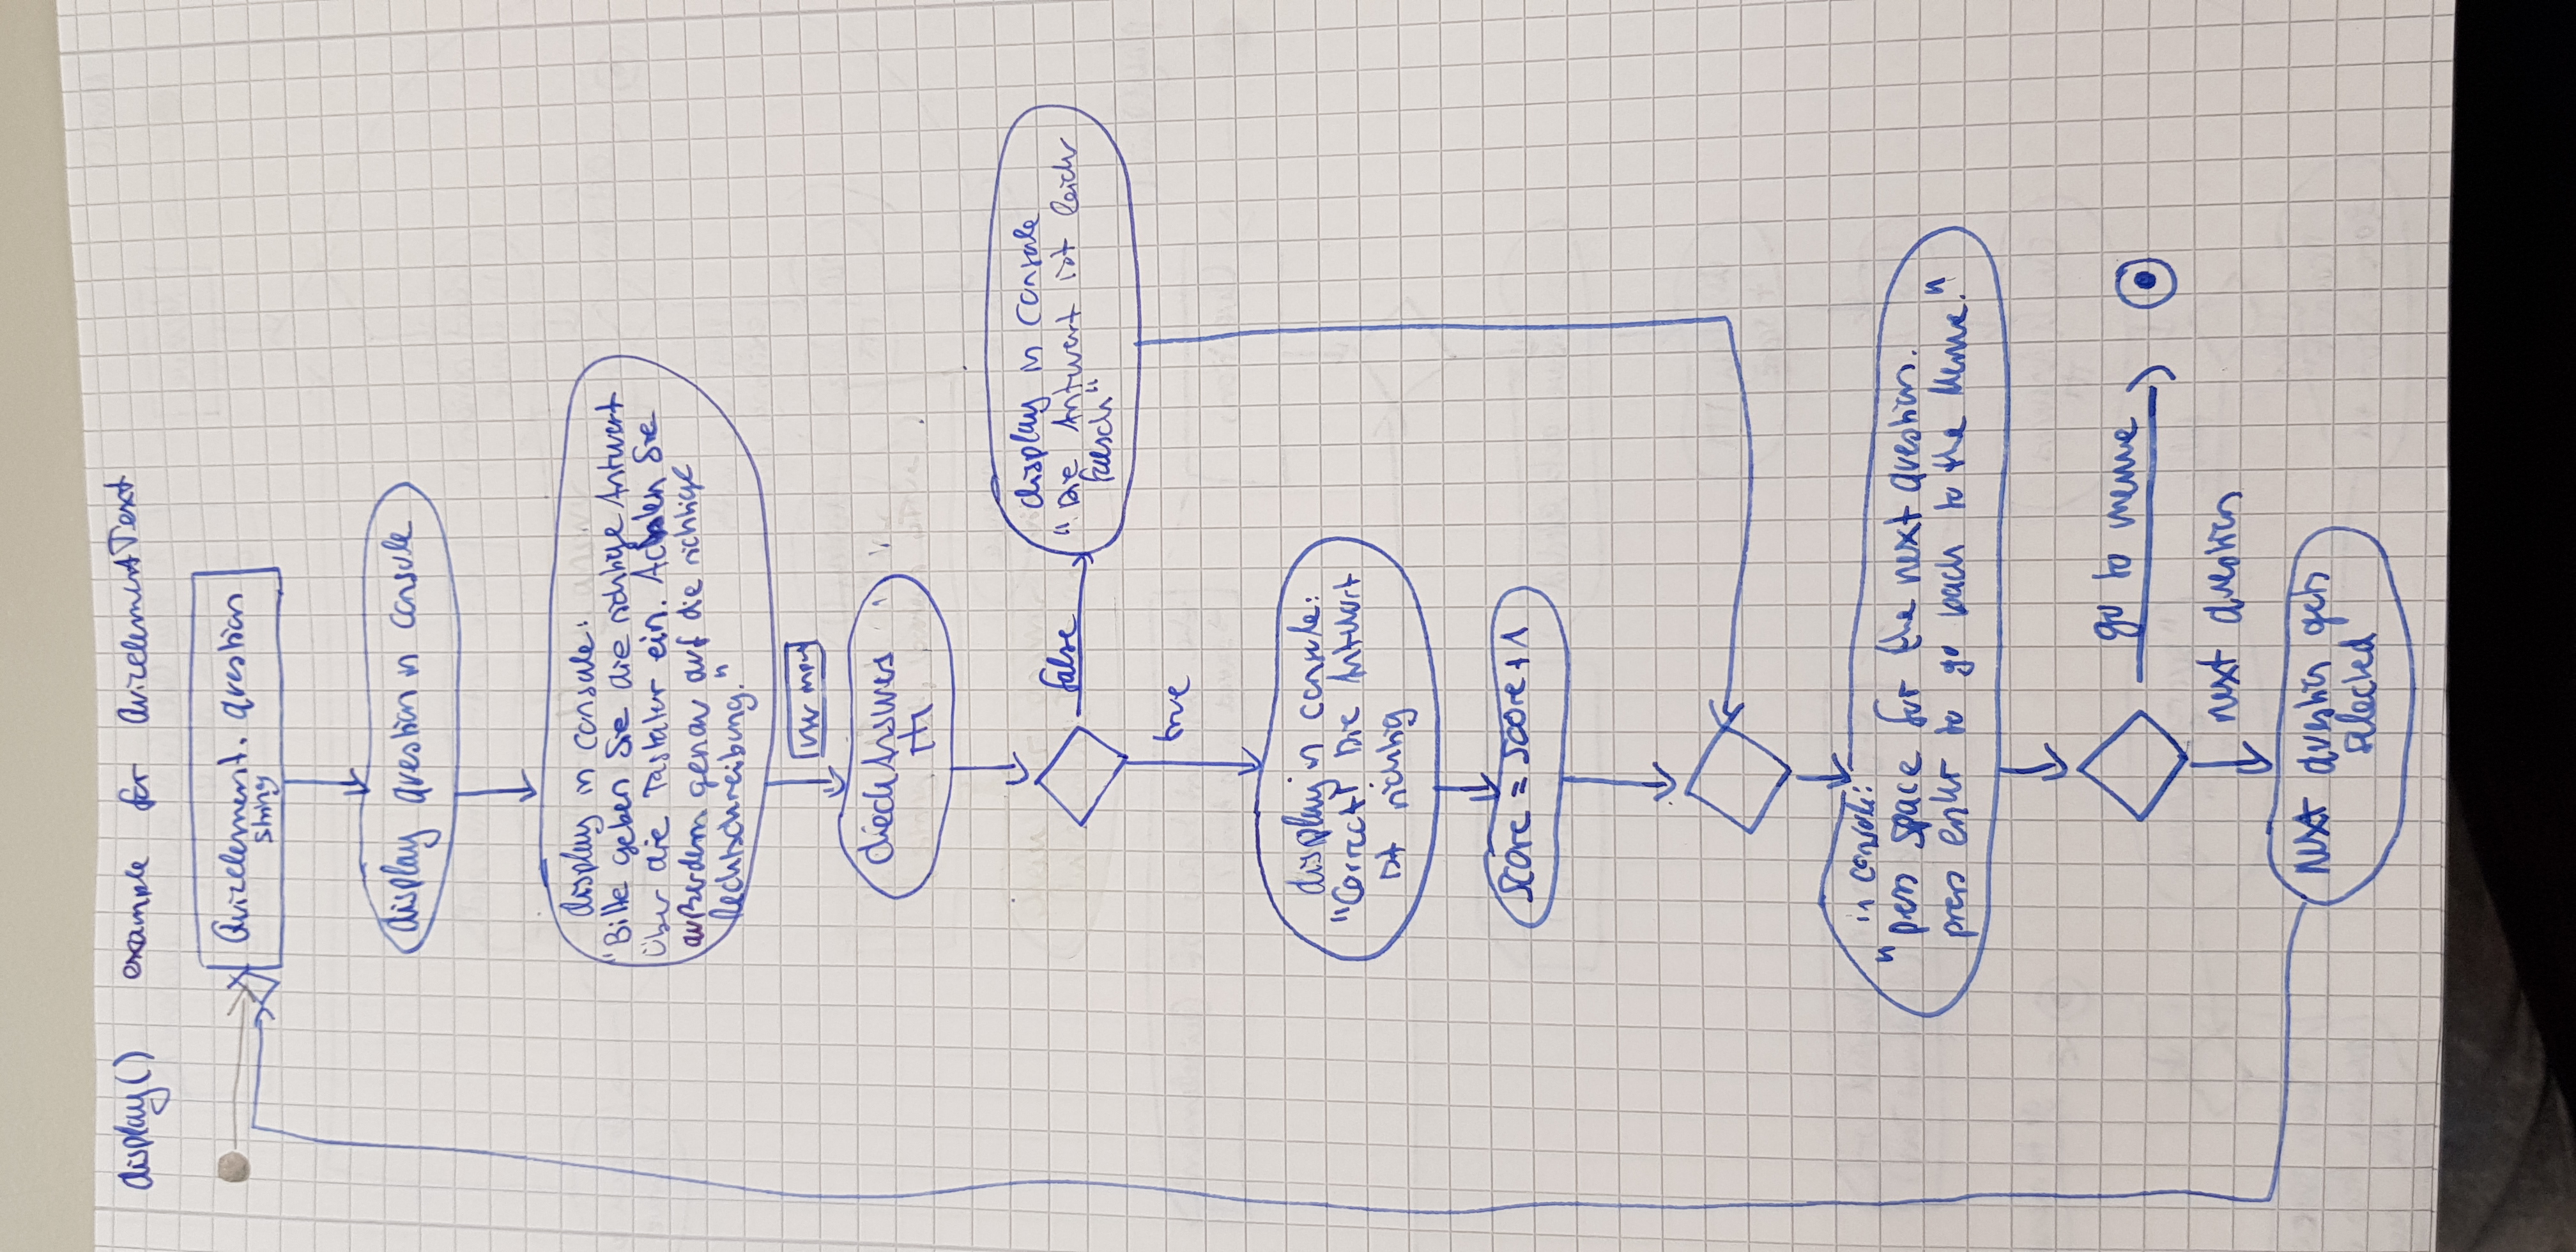 display() example for QuizelementText
Quizelement. question
string
display question in console
display in console:
"Bitte geben Sie die richtige Antwort
über die Tastatur ein. Achten Sie
außerdem genau auf die richtige
Rechtschreibung."
user input
checkAnswer
false
display in console
"Die Antwort ist leider
falsch"
true
display in console:
"Correct! Die Antwort
ist richtig
score = score + 1
in console:
"press space for the next question.
press enter to go back to the Menue."
go to menue
next question
next question gets
selected